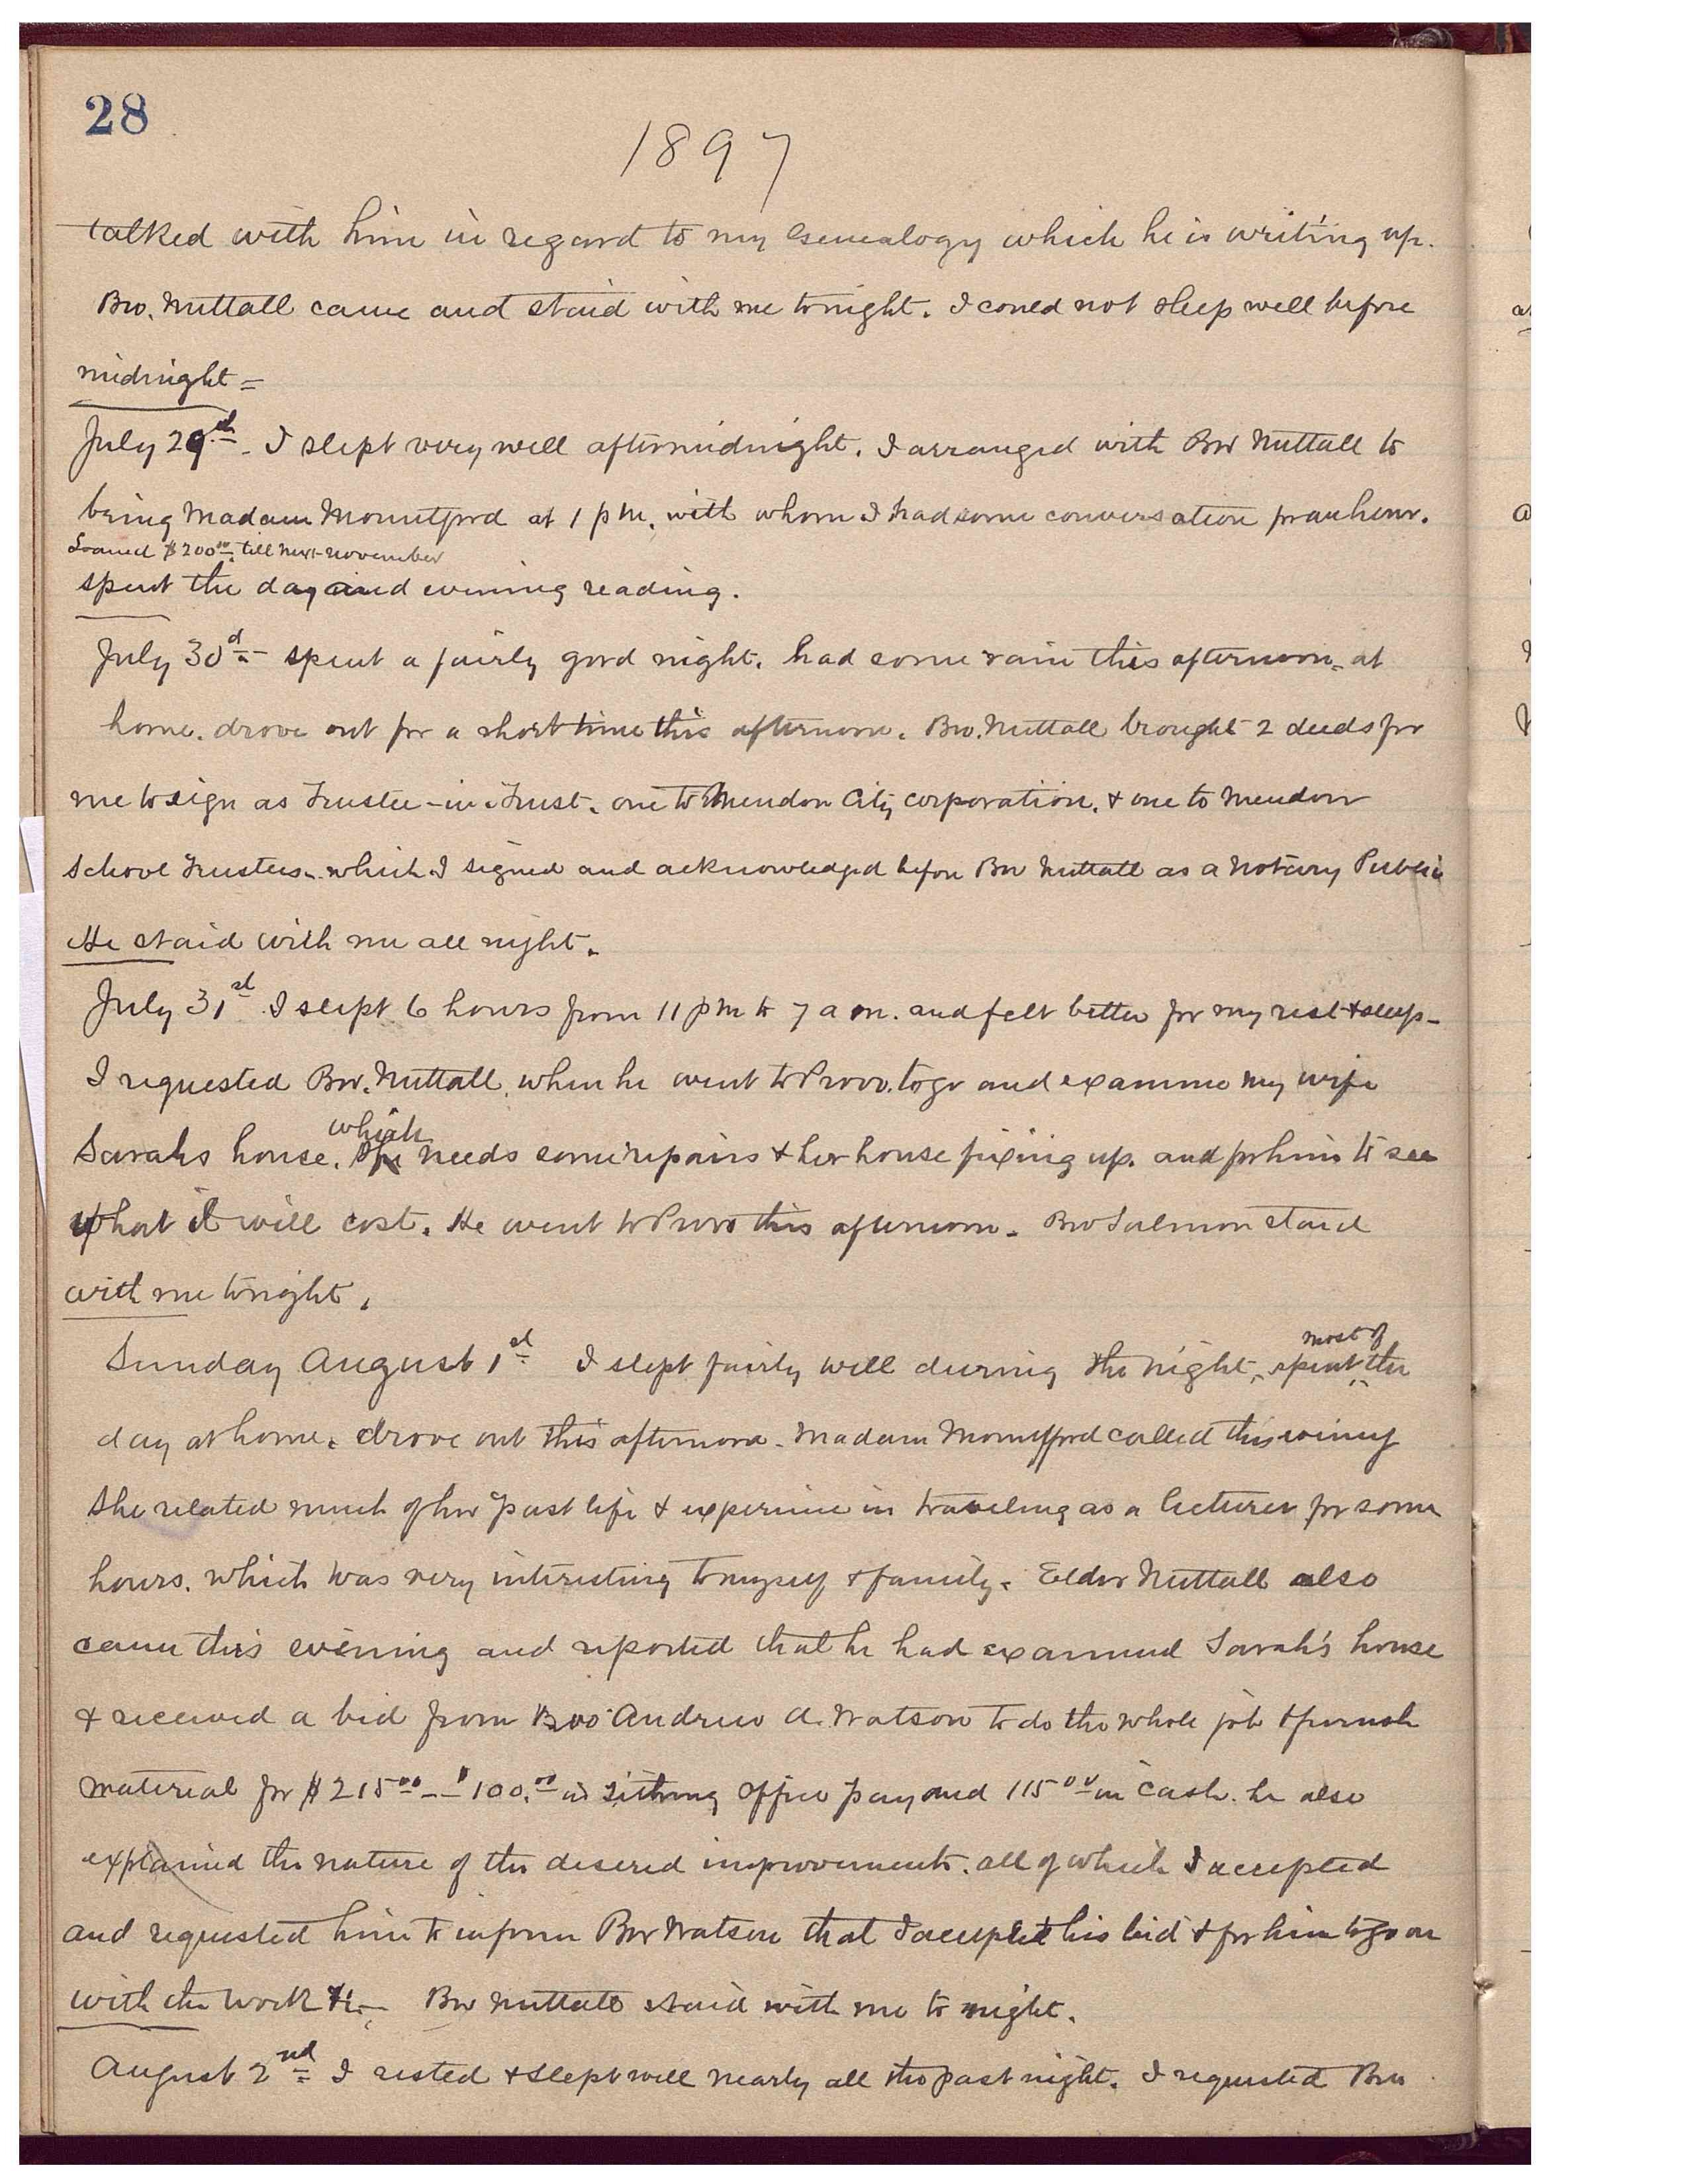 28
1897
talked with him in regard to my Genealogy which he is writing up.
Bro. Nuttall came and staid with me tonight. I could not sleep well before
midnight =
July 29d. I slept very well after midnight. I arranged with Bro Nuttall to
bring Madam Mountford at 1 p m, with whom I had some conversation for an hour.
Loaned $200.00 till next November
spent the day and evening reading.
July 30d - spent a fairly good night. had some rain this afternoon. at
home. drove out for a short time this afternoon. Bro. Nuttall brought 2 deeds for
me to sign as Trustee-in-Trust. one to Mendon City corporation. & one to Mendon
School Trustees. which I signed and acknowledged before Bro Nuttall as a Notary Public
He staid with me all night.
July 31st I slept 6 hours from 11 p m to 7 a m. and felt better for my rest & sleep -
I requested Bro. Nuttall. when he went to Provo. to go and examine my wife
which
Sarahs house. She needs some repairs & her house fixing up. and for him to see
what it will cost. He went to Provo this afternoon. Bro Salmon staid
with me tonight.
most of
Sunday August 1st I slept fairly well during the night, spent the
day at home. drove out this afternoon. Madam Mountford called this evening
She related much of her past life & experience in traveling as a lecturer for some
hours. which was very interesting to myself & family. Elder Nuttall also
came this evening and reported that he had examined Sarah's house
& received a bid from Bro Andrew A. Watson to do the whole job & furnish
material for $215.00 - $100.00 in Tithing office pay and 115.00 in cash. he also
explained the nature of the desired improvements. all of which I accepted
and requested him to inform Bro Watson that I accepted his bid & for him to go on
with the work &c. Bro Nuttall staid with me to night.
August 2nd I rested & slept well nearly all the past night. I requested Bro